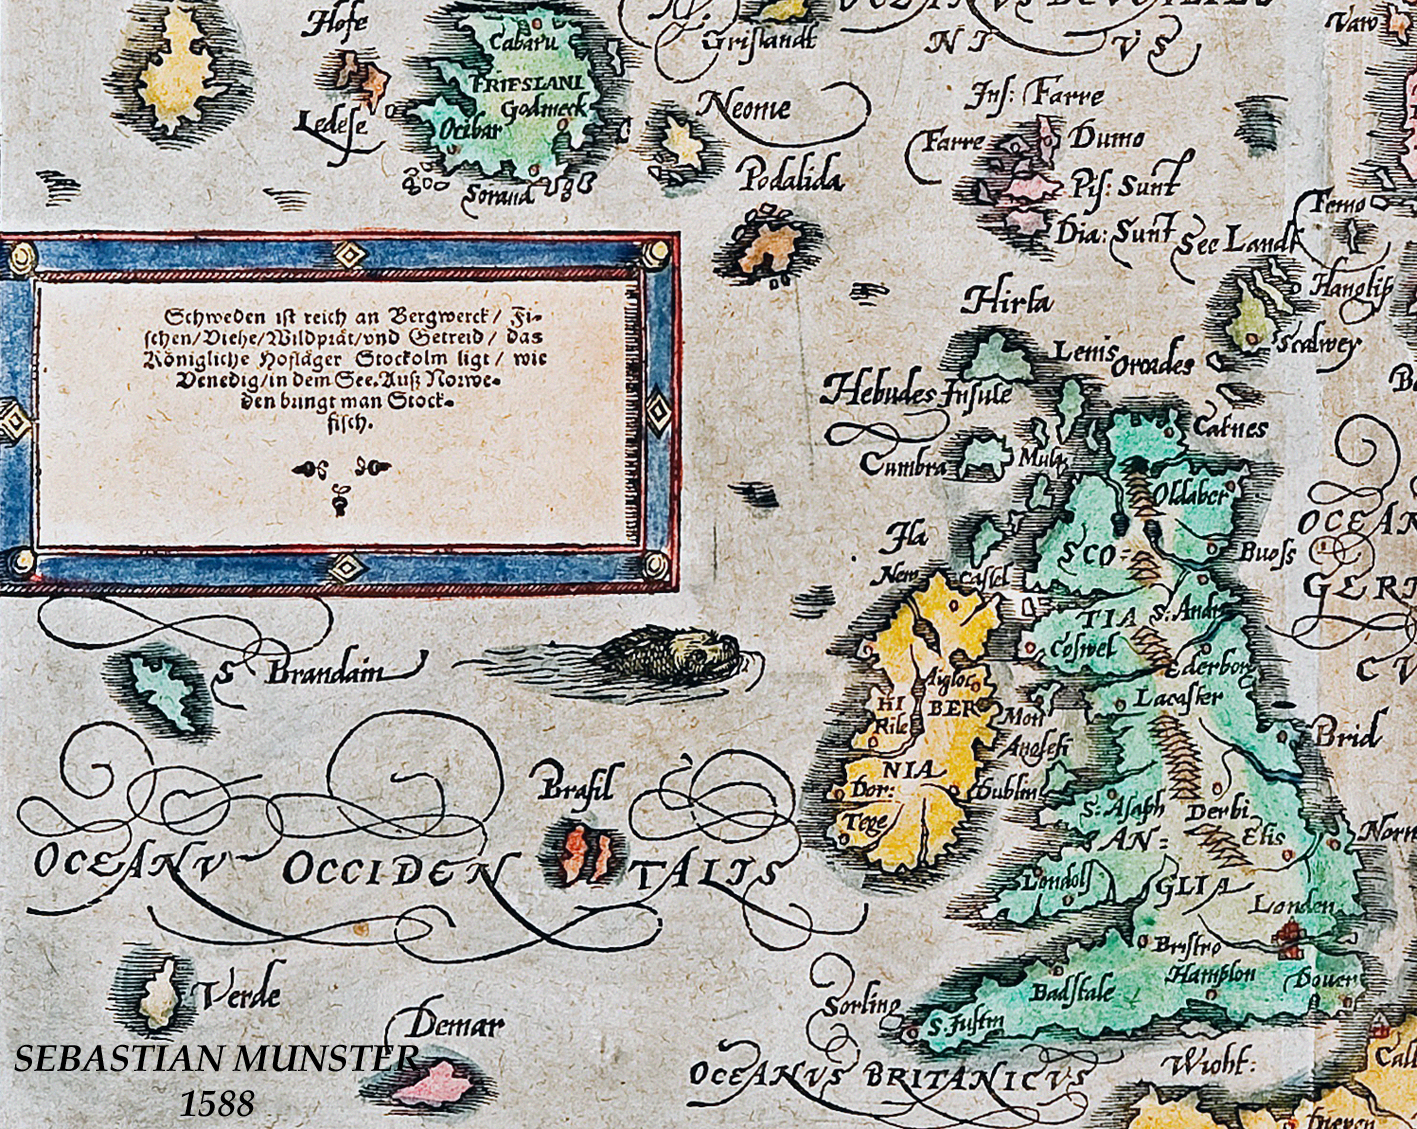 Hofe
Cabaru
FRIESLANT
Godmeck
Ledefe
Ocibar
Sorand
Grislandt
NI VS
Neome
Podalida
Ins: Farre
Farre
Dumo
Pis: Sunt
Dia: Sunt
See Landt
Varo
Femo
Scalwey
Schweden ist reich an Bergwerck/ Fi-
schen/Viehe/Wildprät/vnd Getreid/ das
Königliche Hofläger Stockolm ligt/ wie
Venedig/in dem See. Auß Norwe-
den bringt man Stock-
fisch.
Hirta
Lenis
Orcades
Hebudes Insule
Cumbra
Mula
Catnes
Oldaber
Buoss
Ila
New
Castel
SCO-
TIA
S: Andr
Coswel
Ederborg
Lacaster
OCEAN
GER
S Brandain
HI BER
NIA
Rile
Mon
Dublin
Dor:
Brid
S: Asaph
Derbi
Elis
AN=
GLIA
Londen
Bristro
Hamplon
Badstale
Douer
S. Justin
Sorling
Wicht:
Brasil
OCEANV OCCIDEN TALIS
Verde
Demar
OCEANVS BRITANICVS
SEBASTIAN MUNSTER
1588